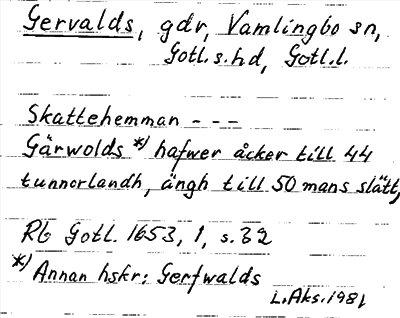 Gervalds, gdr, Vamlingbo sn,
Gotl. s. hd, Gotl. l.
Skattehemman - - -
Gärwolds *) hafwer åcker till 44
tunnorlandh, ängh till 50 mans slått,
Rb Gotl. 1653, 1, s. 32
*) Annan hskr: Gerfwalds
L. Aks. 1981